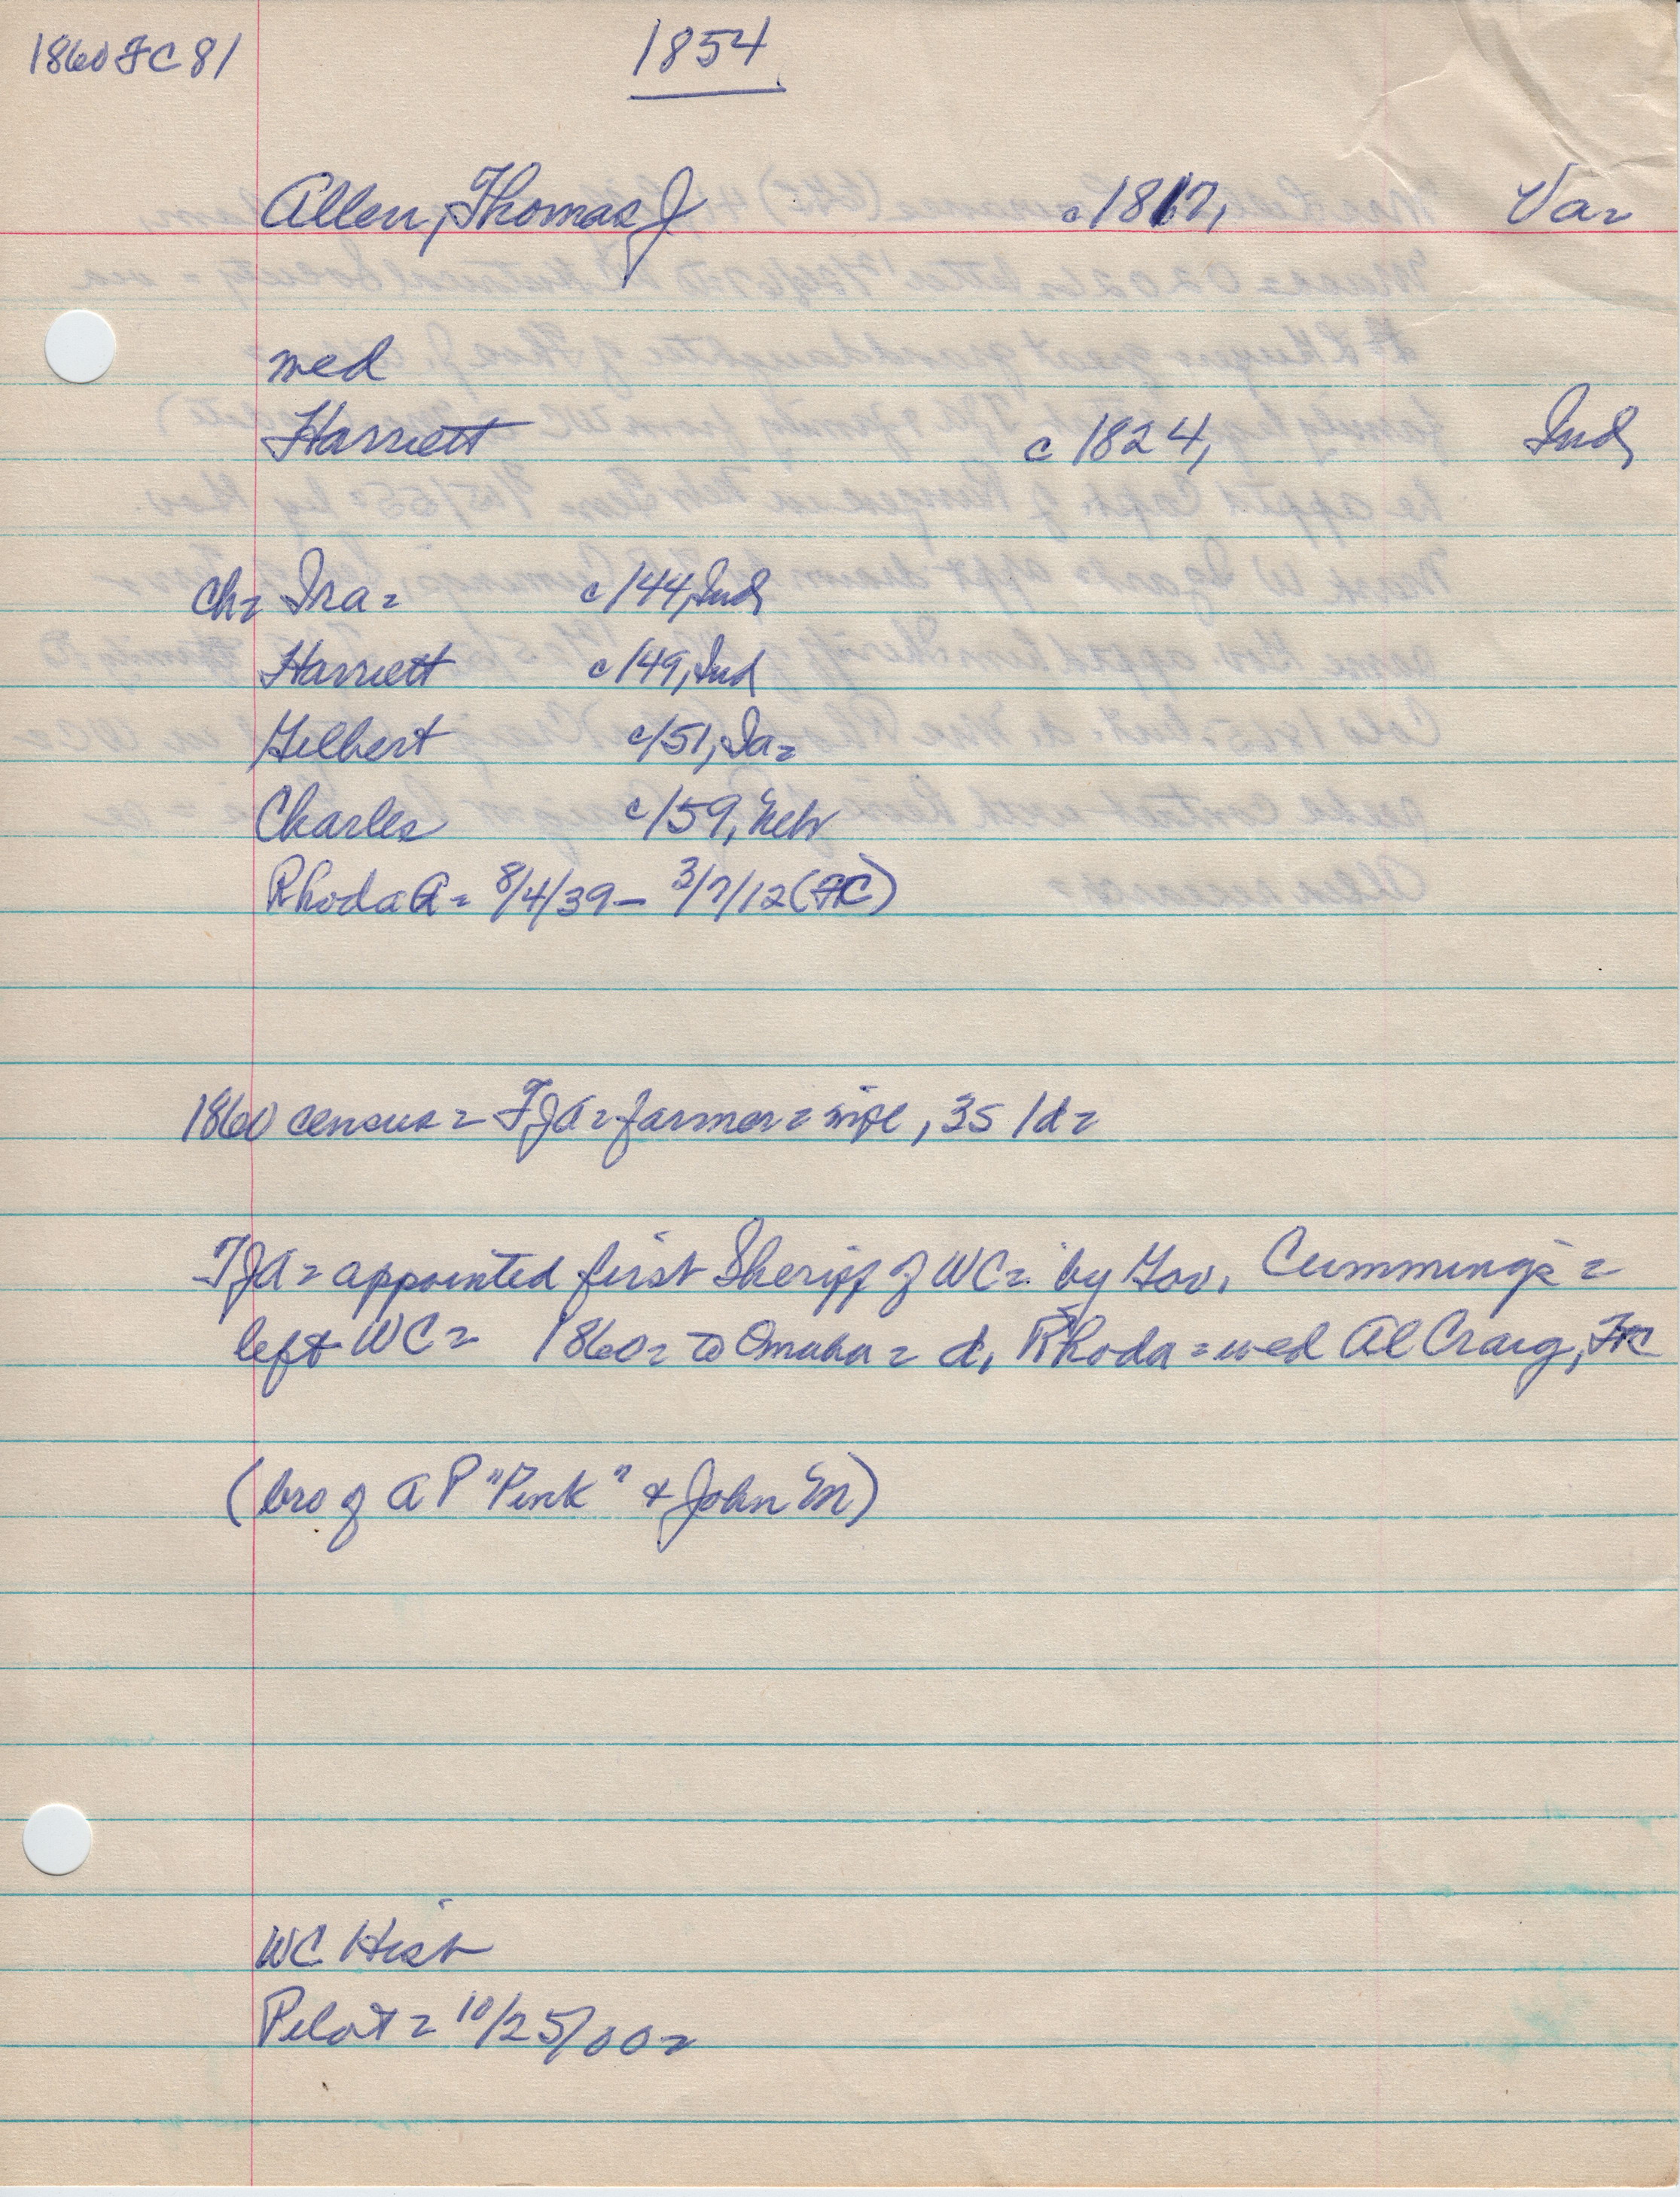 1860 FC 81
1854
Allen, Thomas J c 1817, Va=
wed
Harriett c 1824, Ind,
Ch= Ira= c/44, Ind
Harriett c/49, Ind
Gilbert c/51, Ia=
Charles c/59, Neb
Rhoda A= 8/4/39 – 3/7/12 (FC)
1860 census = TJA = farmer = wife, 35 /d=
TJA = appointed first Sheriff of WC = by Gov. Cummings =
left WC = 1860 = to Omaha = d, Rhoda = wed Al Craig, FC
(bro of A P "Pink" & John M)
WC Hist
Pilot = 10/25/00 =